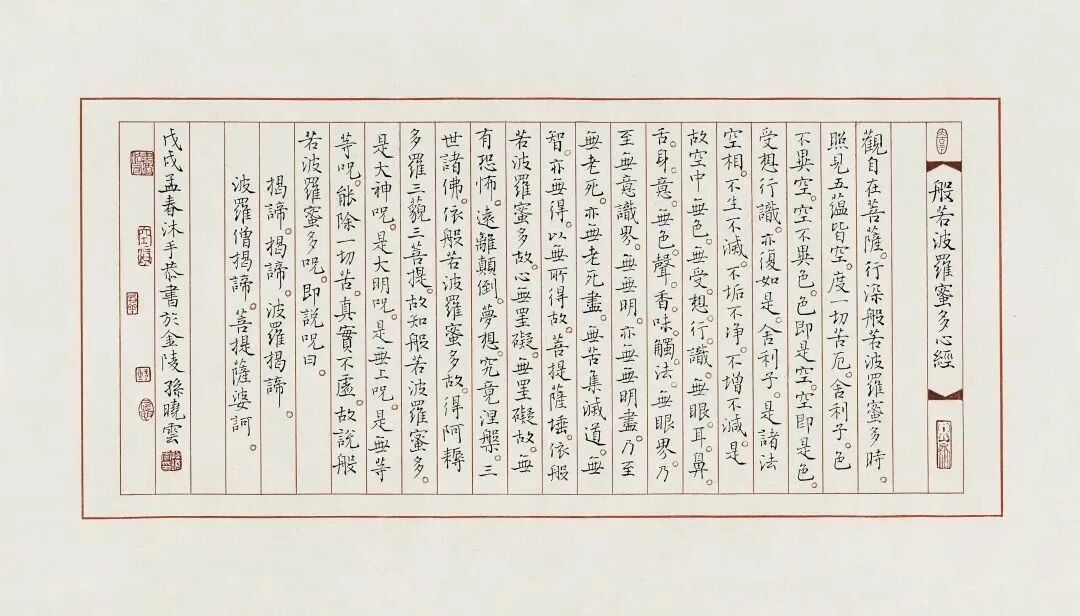 般若波羅蜜多心經
觀自在菩薩。行深般若波羅蜜多時。
照見五蘊皆空。度一切苦厄。舍利子。色
不異空。空不異色。色即是空。空即是色。
受想行識。亦復如是。舍利子。是諸法
空相。不生不滅。不垢不净。不增不減。是
故空中無色。無受。想。行。識。無眼。耳。鼻。
舌。身。意。無色。聲。香。味。觸。法。無眼界。乃
至無意識界。無無明。亦無無明盡。乃至
無老死。亦無老死盡。無苦集滅道。無
智。亦無得。以無所得故。菩提薩埵。依般
若波羅蜜多故。心無罣礙。無罣礙故。無
有恐怖。遠離顛倒。夢想。究竟涅槃。三
世諸佛。依般若波羅蜜多故。得阿耨
多羅三藐三菩提。故知般若波羅蜜多。
是大神呪。是大明呪。是無上呪。是無等
等呪。能除一切苦。真實不虛。故說般
若波羅蜜多呪。即說呪曰。
揭諦。揭諦。波羅揭諦。
波羅僧揭諦。菩提薩婆訶。
戊戌孟春沐手恭書於金陵孫曉雲